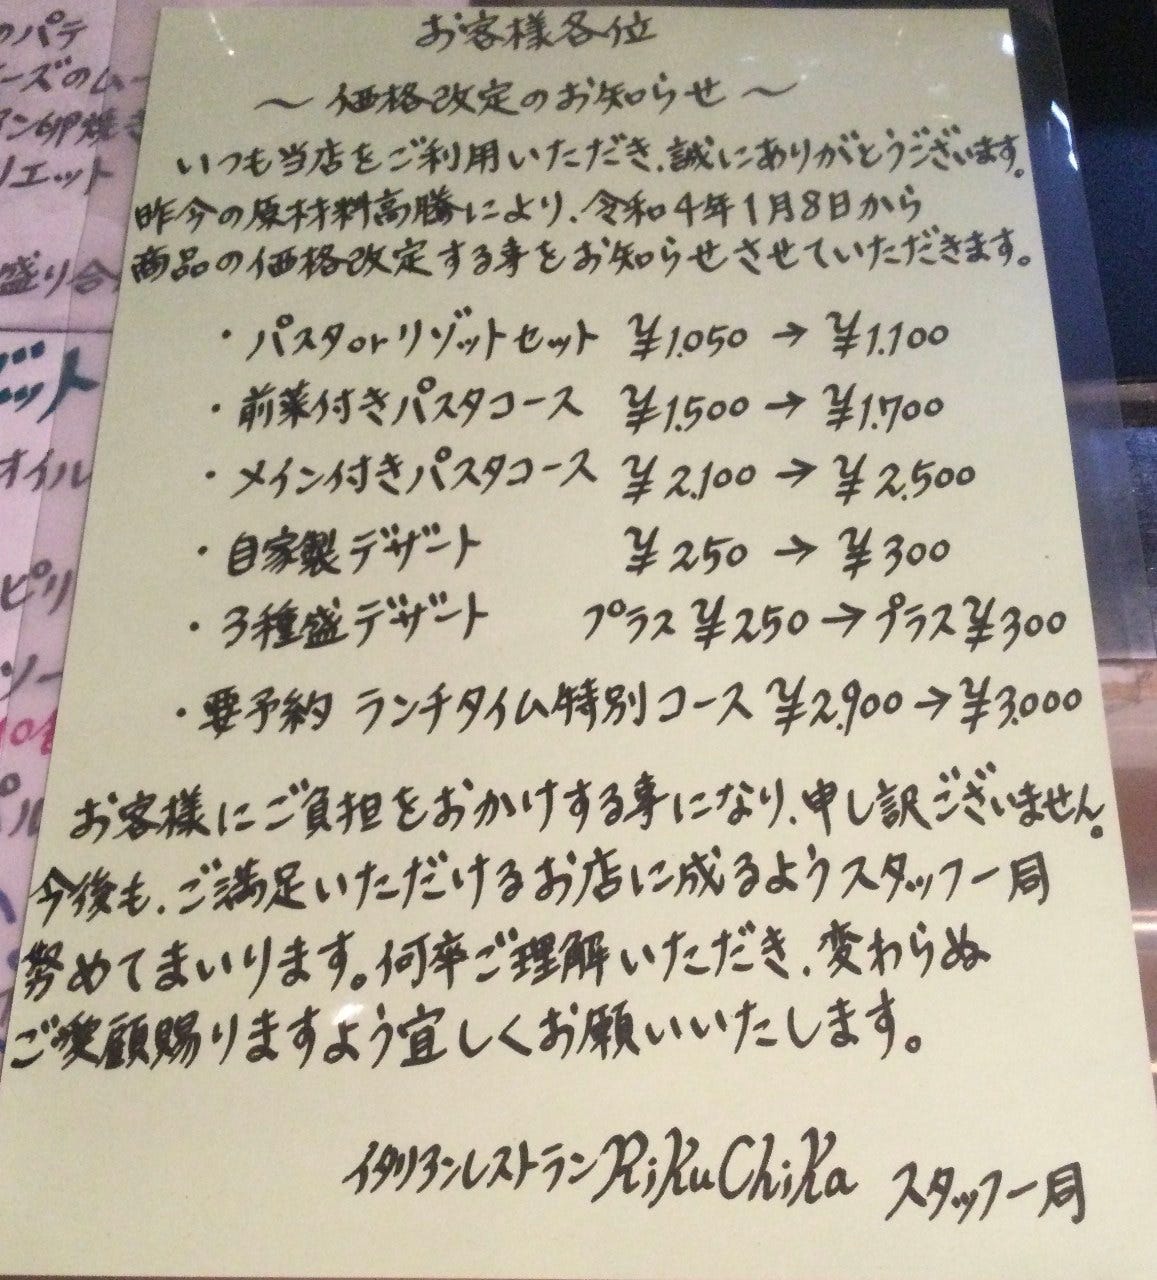 お客様各位
～価格改定のお知らせ～
いつも当店をご利用いただき、誠にありがとうございます。
昨今の原材料高勝により、令和4年1月8日から
商品の価格改定する事をお知らせさせていただきます。
・パスタorリゾットセット ¥1.050→¥1.100
・前菜付きパスタコース ¥1.500→¥1.700
・メイン付きパスタコース ¥2.100→¥2.500
・自家製デザート ¥250→¥300
・3種盛デザート プラス¥250→プラス¥300
・要予約 ランチタイム特別コース ¥2.900→¥3.000
お客様にご負担をおかけする事になり、申し訳ございません。
今後も、ご満足いただけるお店に成るようスタッフ一同
努めてまいります。何卒ご理解いただき、変わらぬ
ご愛顧賜りますよう宜しくお願いいたします。
イタリアンレストランRiKuChiKa スタッフ一同
のパテ
ーズのム
アン卵焼き
リエット
盛り合
ゾット
オイル
ピリ
ソー
パル